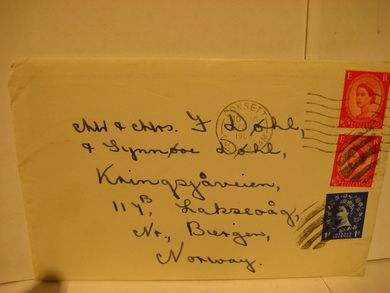 Mr & Mrs. F Dohl,
& Synnøve Dohl,
Kringsjåveien,
117B, Laksevåg,
Nr., Bergen,
Norway.
CONSETT
E R